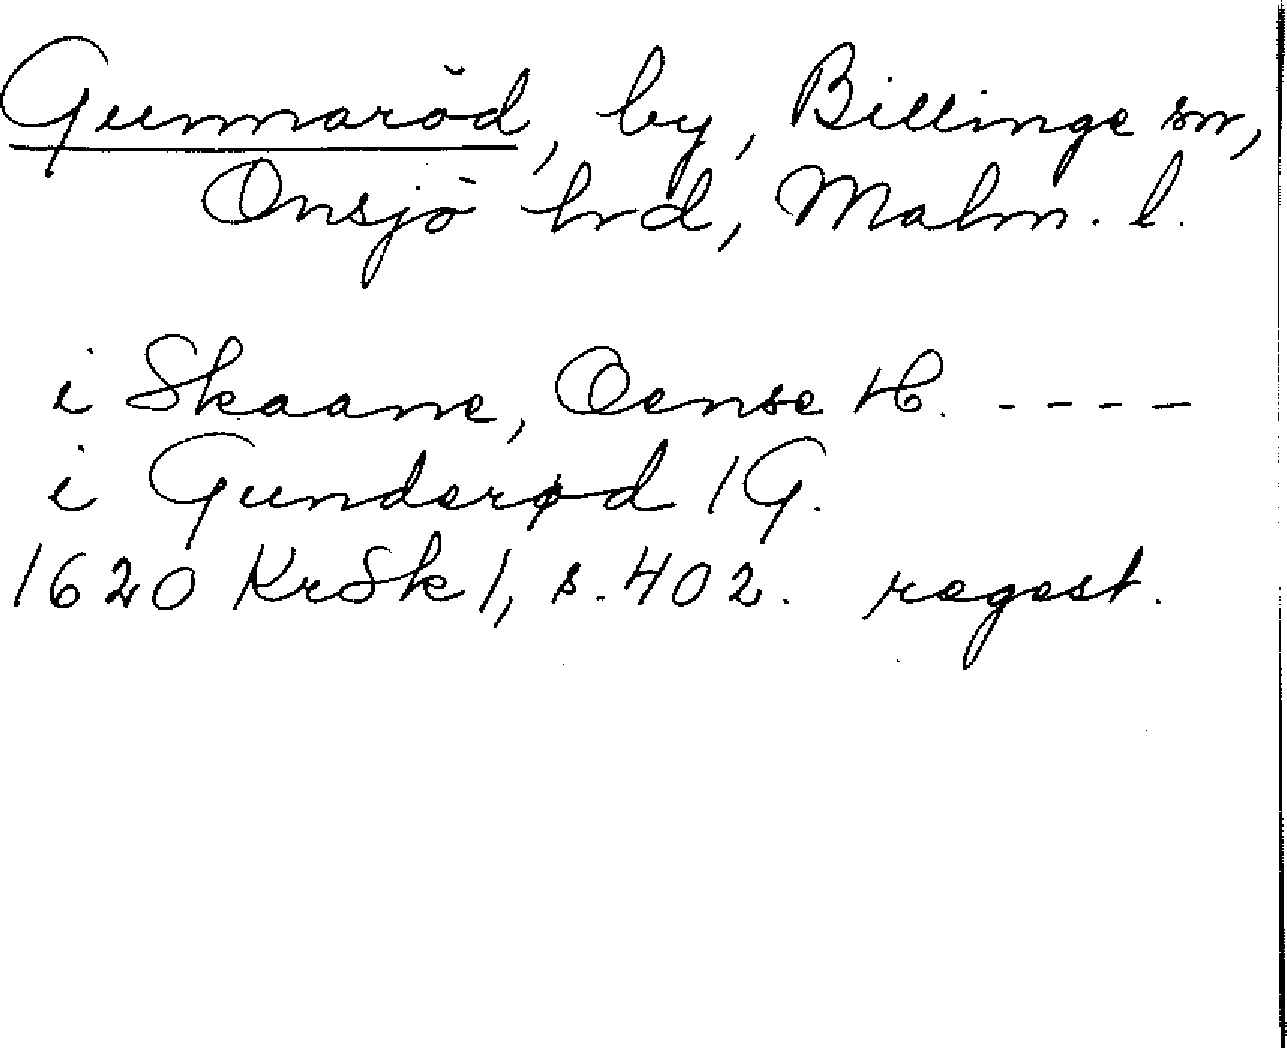 Gunnaröd, by, Billinge sn,
Onsjö hrd, Malm. l.
i Skaane, Oense H. ----
i Gunderød 1 G.
1620 KrSk 1, s. 402. regest.